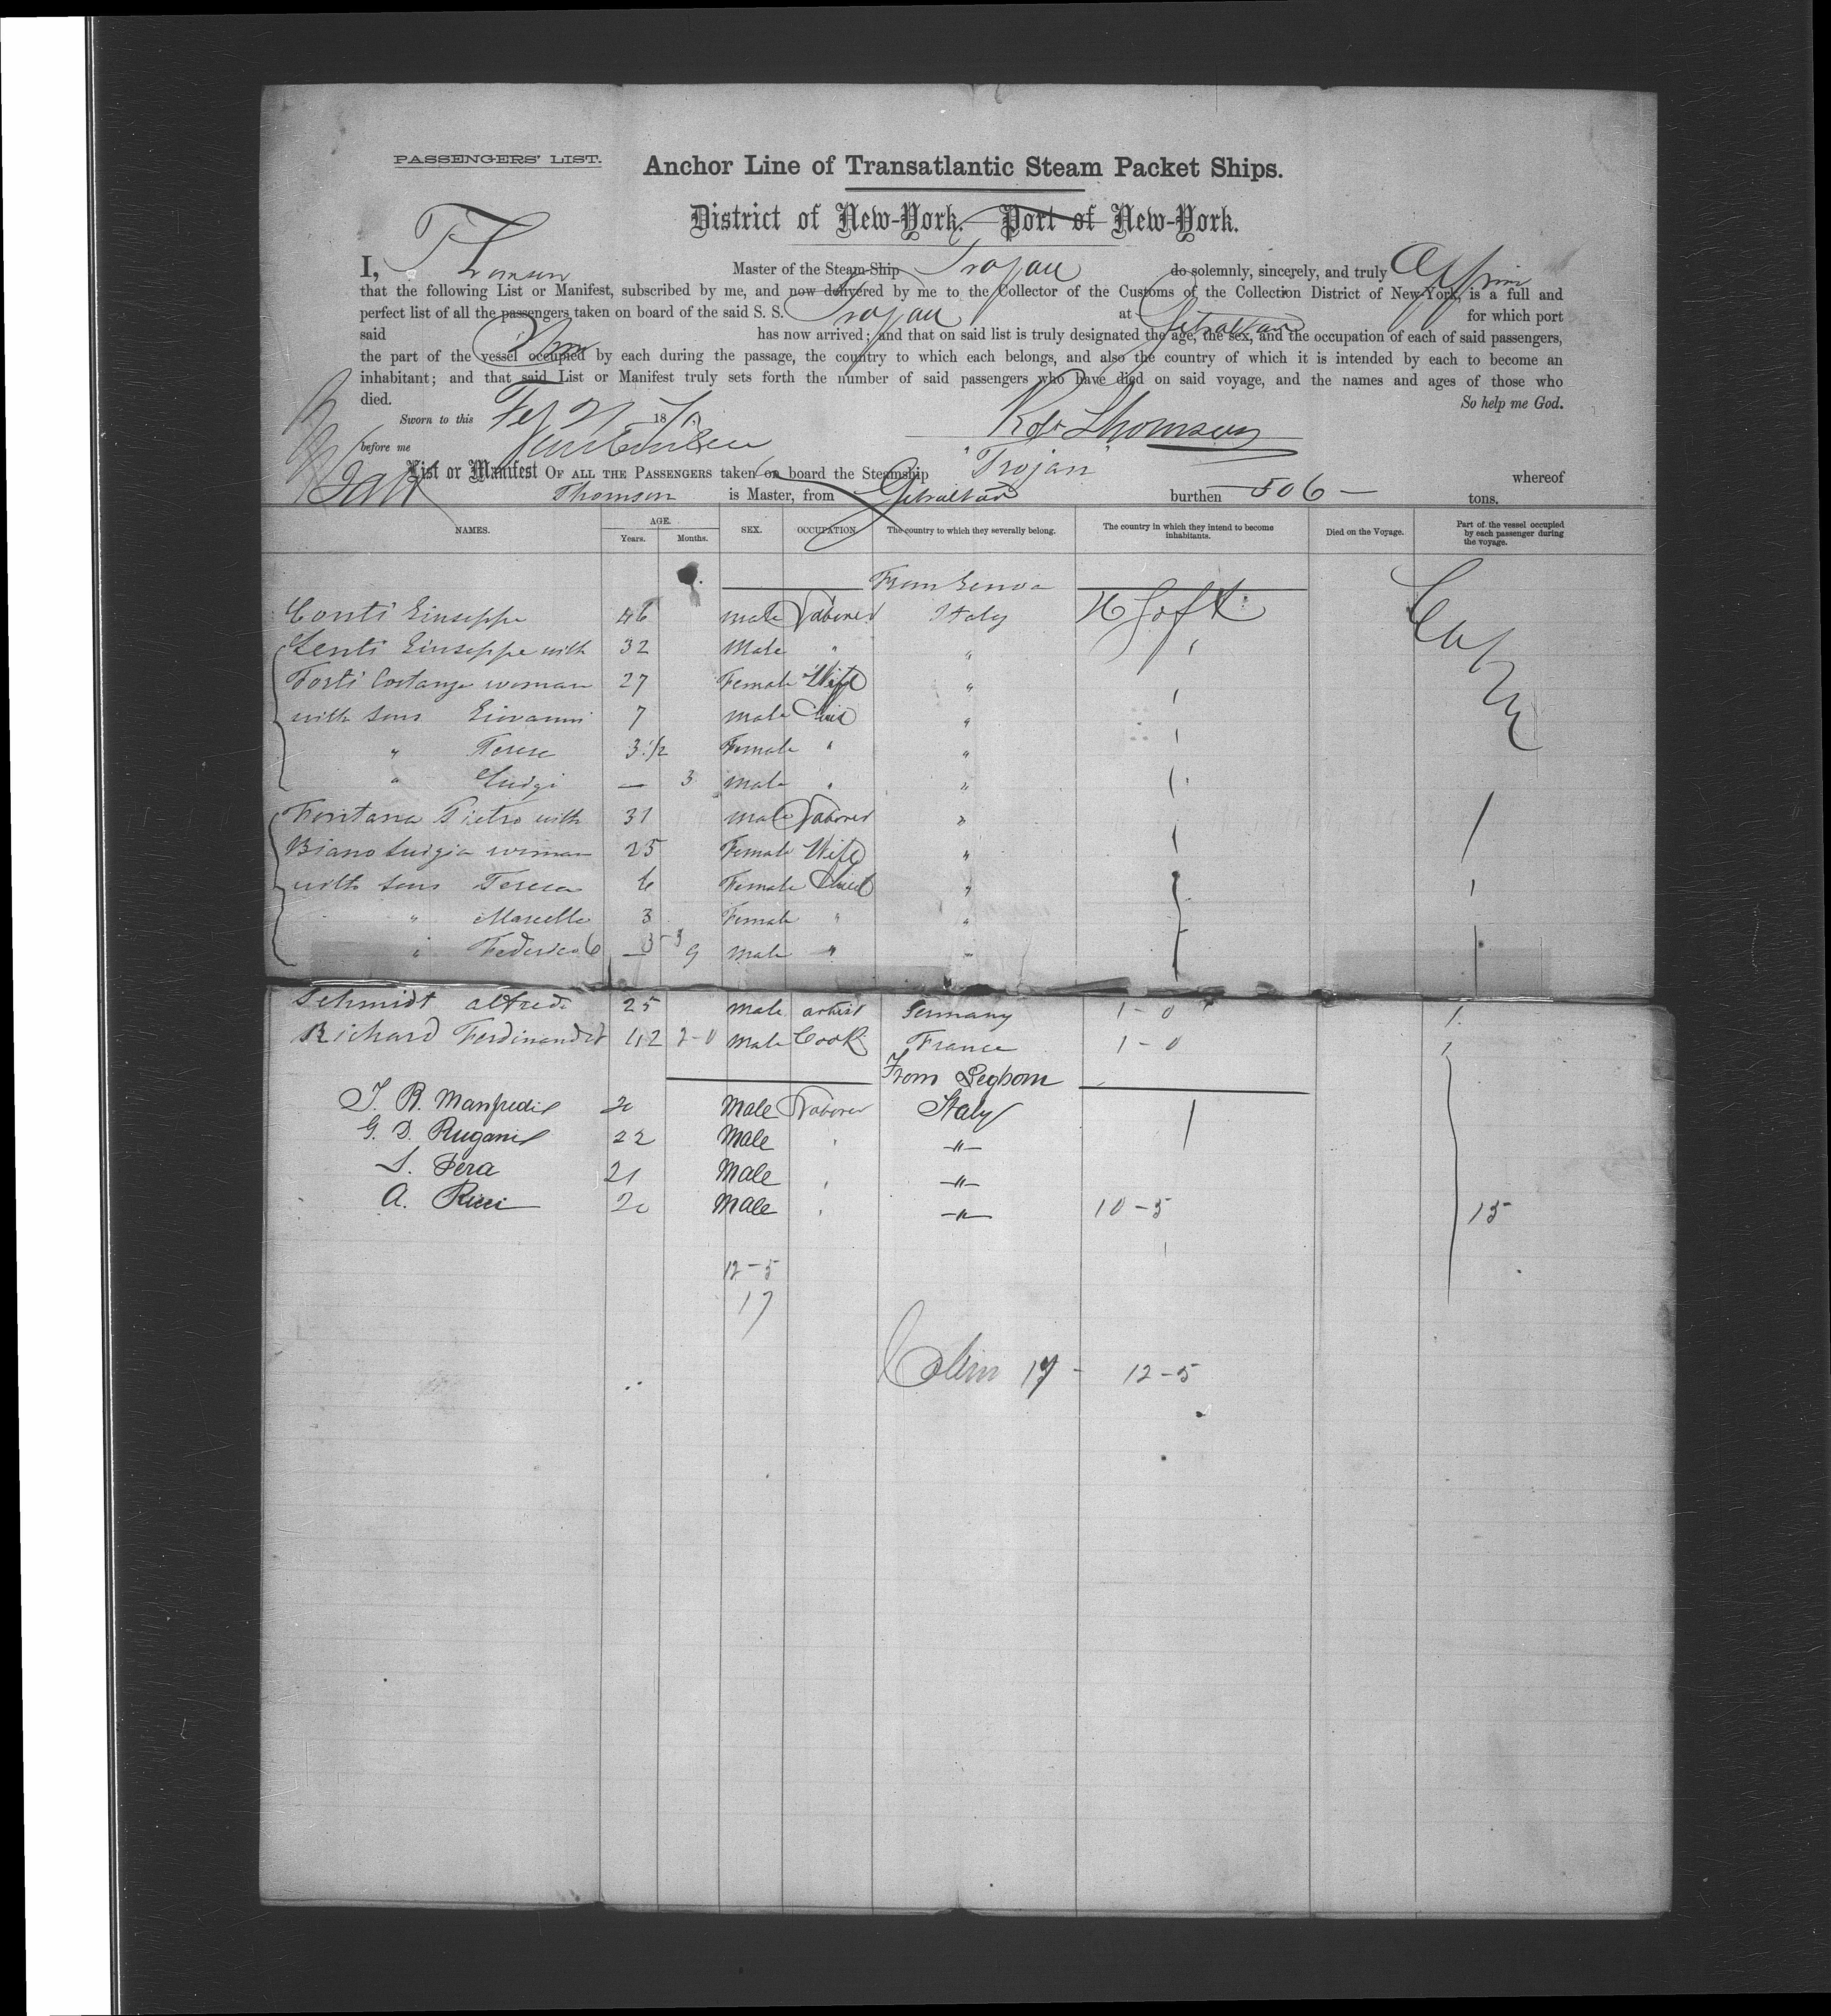 PASSENGERS' LIST.
Anchor Line of Transatlantic Steam Packet Ships.
District of New-York. Port of New-York.
I, Thomson Master of the Steam-Ship Trojan do solemnly, sincerely, and truly affirm
that the following List or Manifest, subscribed by me, and now delivered by me to the Collector of the Customs of the Collection District of New-York, is a full and
perfect list of all the passengers taken on board of the said S. S. Trojan at Gibraltar for which port
said has now arrived; and that on said list is truly designated the age, the sex, and the occupation of each of said passengers,
the part of the vessel occupied by each during the passage, the country to which each belongs, and also the country of which it is intended by each to become an
inhabitant; and that said List or Manifest truly sets forth the number of said passengers who have died on said voyage, and the names and ages of those who
died. So help me God.
Sworn to this Feb 21 187 Robt Thomson
before me
List or Manifest OF ALL THE PASSENGERS taken on board the Steamship "Trojan" whereof
Thomson is Master, from Gibraltar burthen 506 — tons.
NAMES. AGE. Years. Months. SEX. OCCUPATION. The country to which they severally belong. The country in which they intend to become inhabitants. Died on the Voyage. Part of the vessel occupied by each passenger during the voyage.
From Genoa
Conti Giuseppe 46 male Laborer Italy
Genti Giuseppe with 32 Male " "
Forti Costanza woman 27 Female Wife "
with sons Giovanni 7 male "
" Terese 3 1/2 Female " "
" Luigi — 3 male " "
Fontana Pietro with 31 male Laborer "
Biano Luigia woman 25 Female Wife "
with sons Teresa 6 Female Child "
" Marcella 3 Female " "
" Federico — 9 male " "
Schmidt alfred 25 male artist Germany 1-0
Richard Ferdinandt 42 2-0 male Cook France 1-0
From Leghorn
J. B. Manfredi 20 Male Laborer Italy
G. D. Rugani 22 Male " "
S. Pera 21 Male " "
A. Ricci 20 Male " " 10-5 15
12-5
17
17 - 12-5